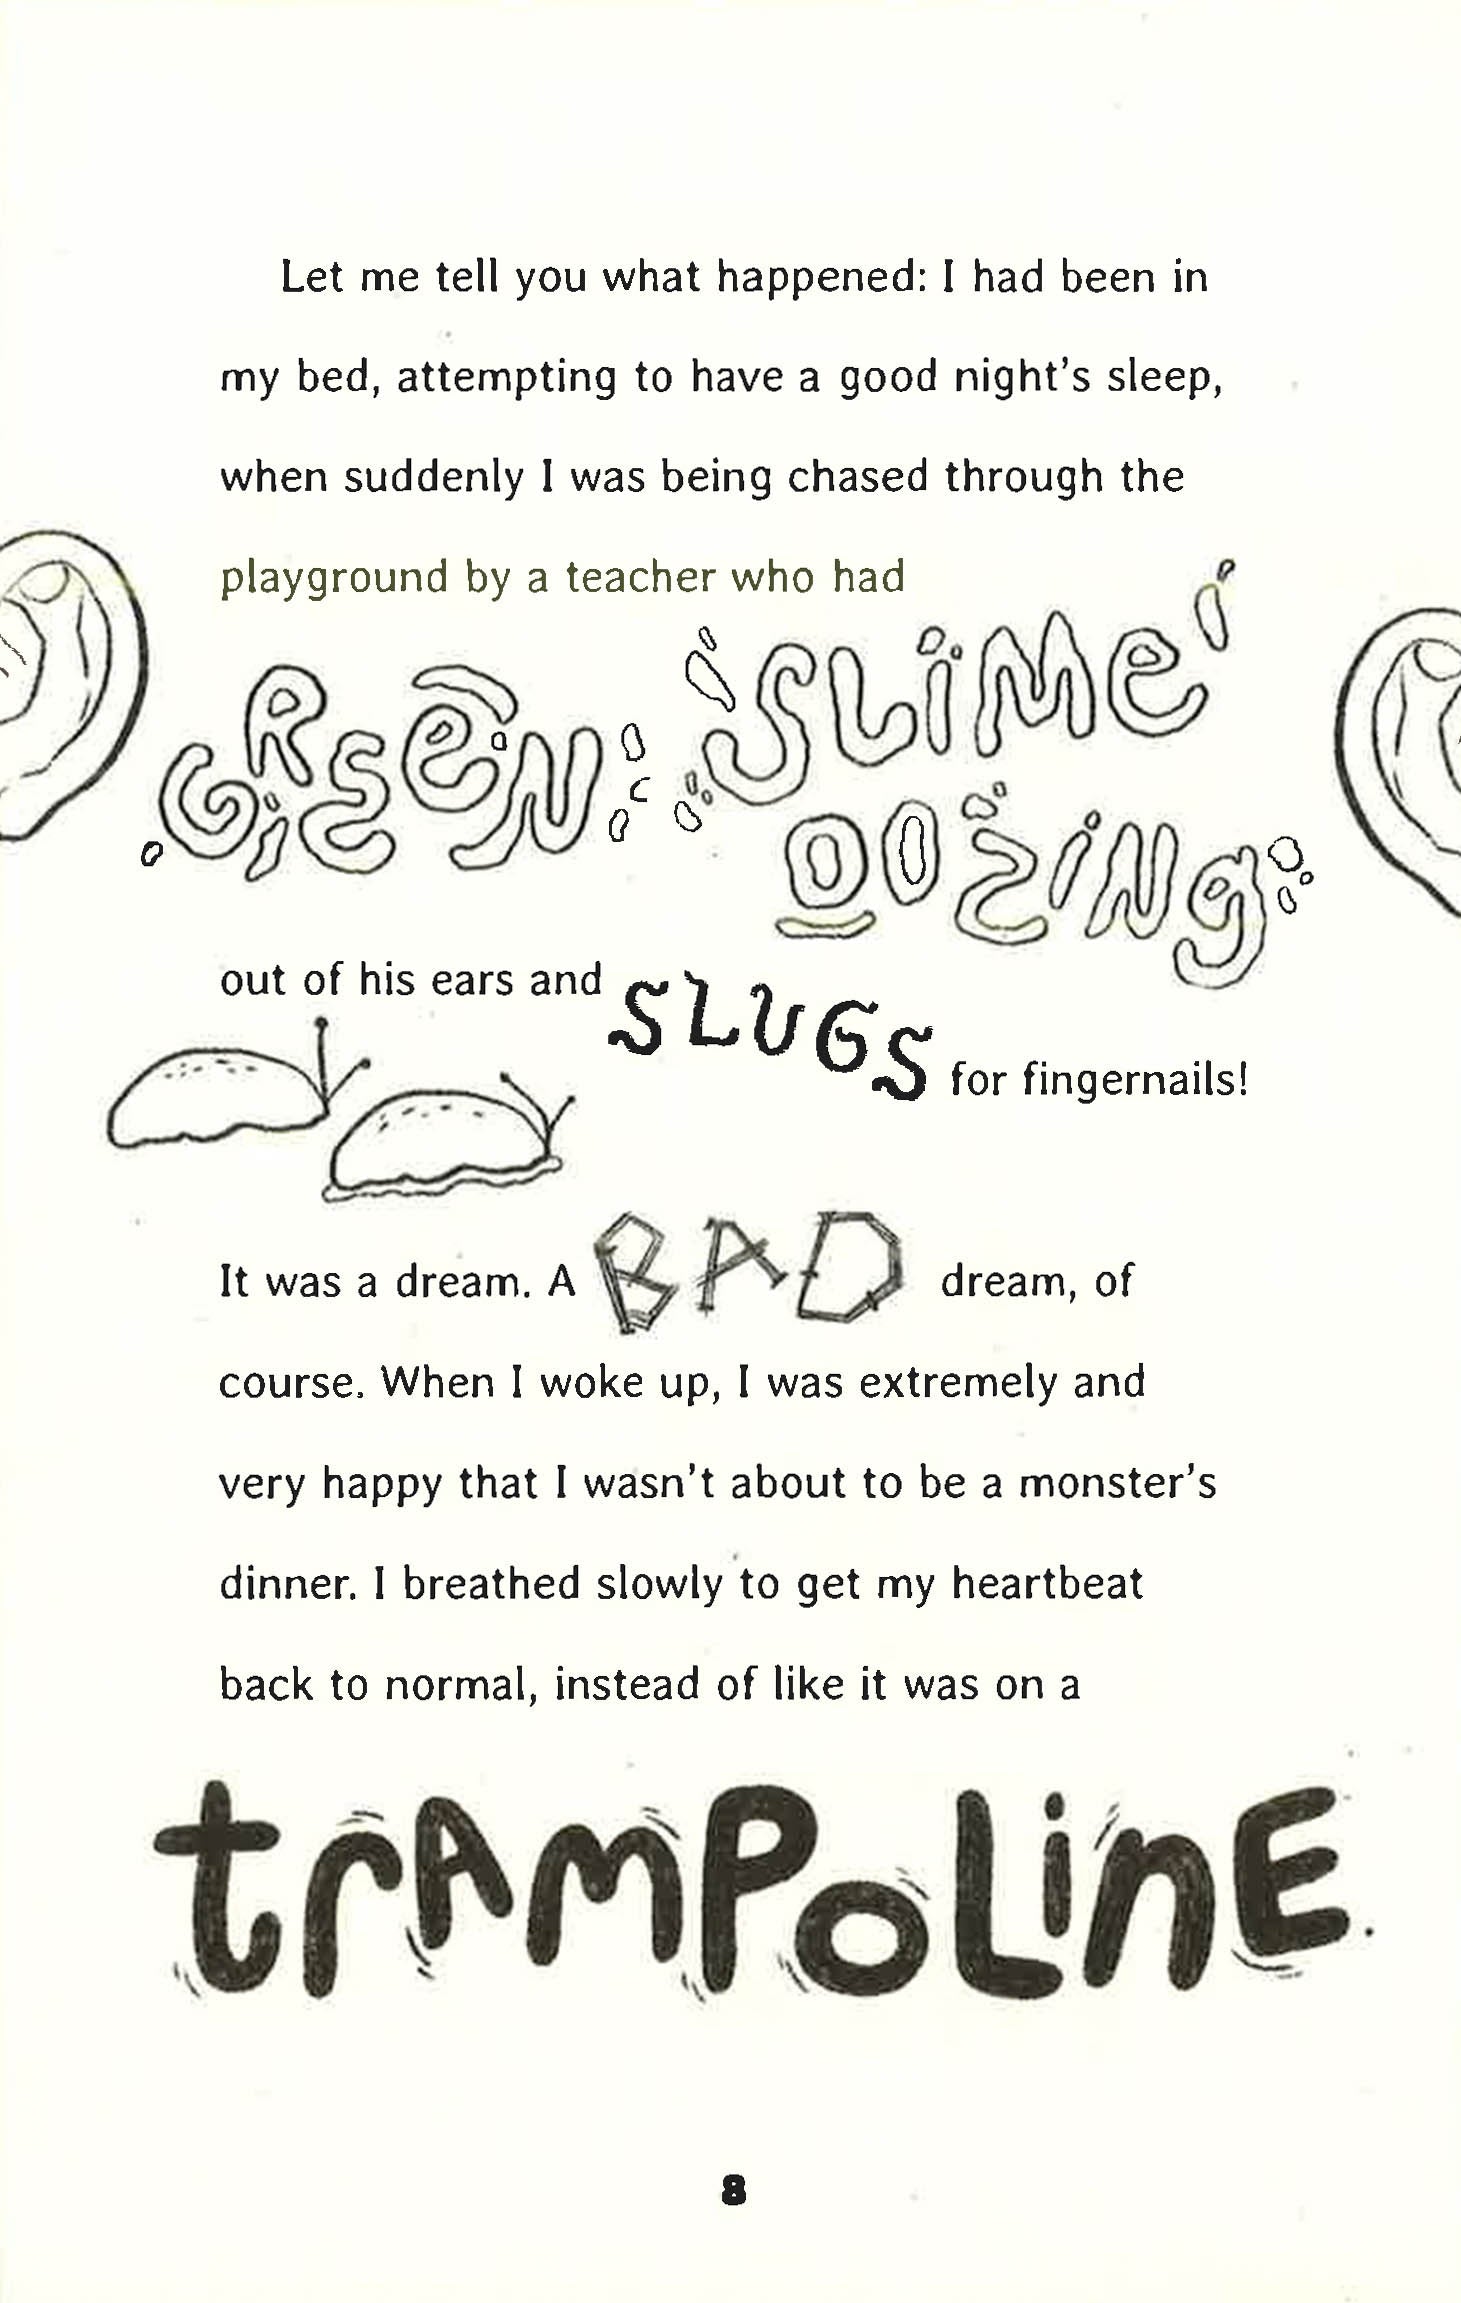 Let me tell you what happened: I had been in
my bed, attempting to have a good night's sleep,
when suddenly I was being chased through the
playground by a teacher who had
GREEN SLiMe
OOZiNg
out of his ears and SLUGS for fingernails!
It was a dream. A BAD dream, of
course. When I woke up, I was extremely and
very happy that I wasn't about to be a monster's
dinner. I breathed slowly to get my heartbeat
back to normal, instead of like it was on a
trAMPoLinE.
8